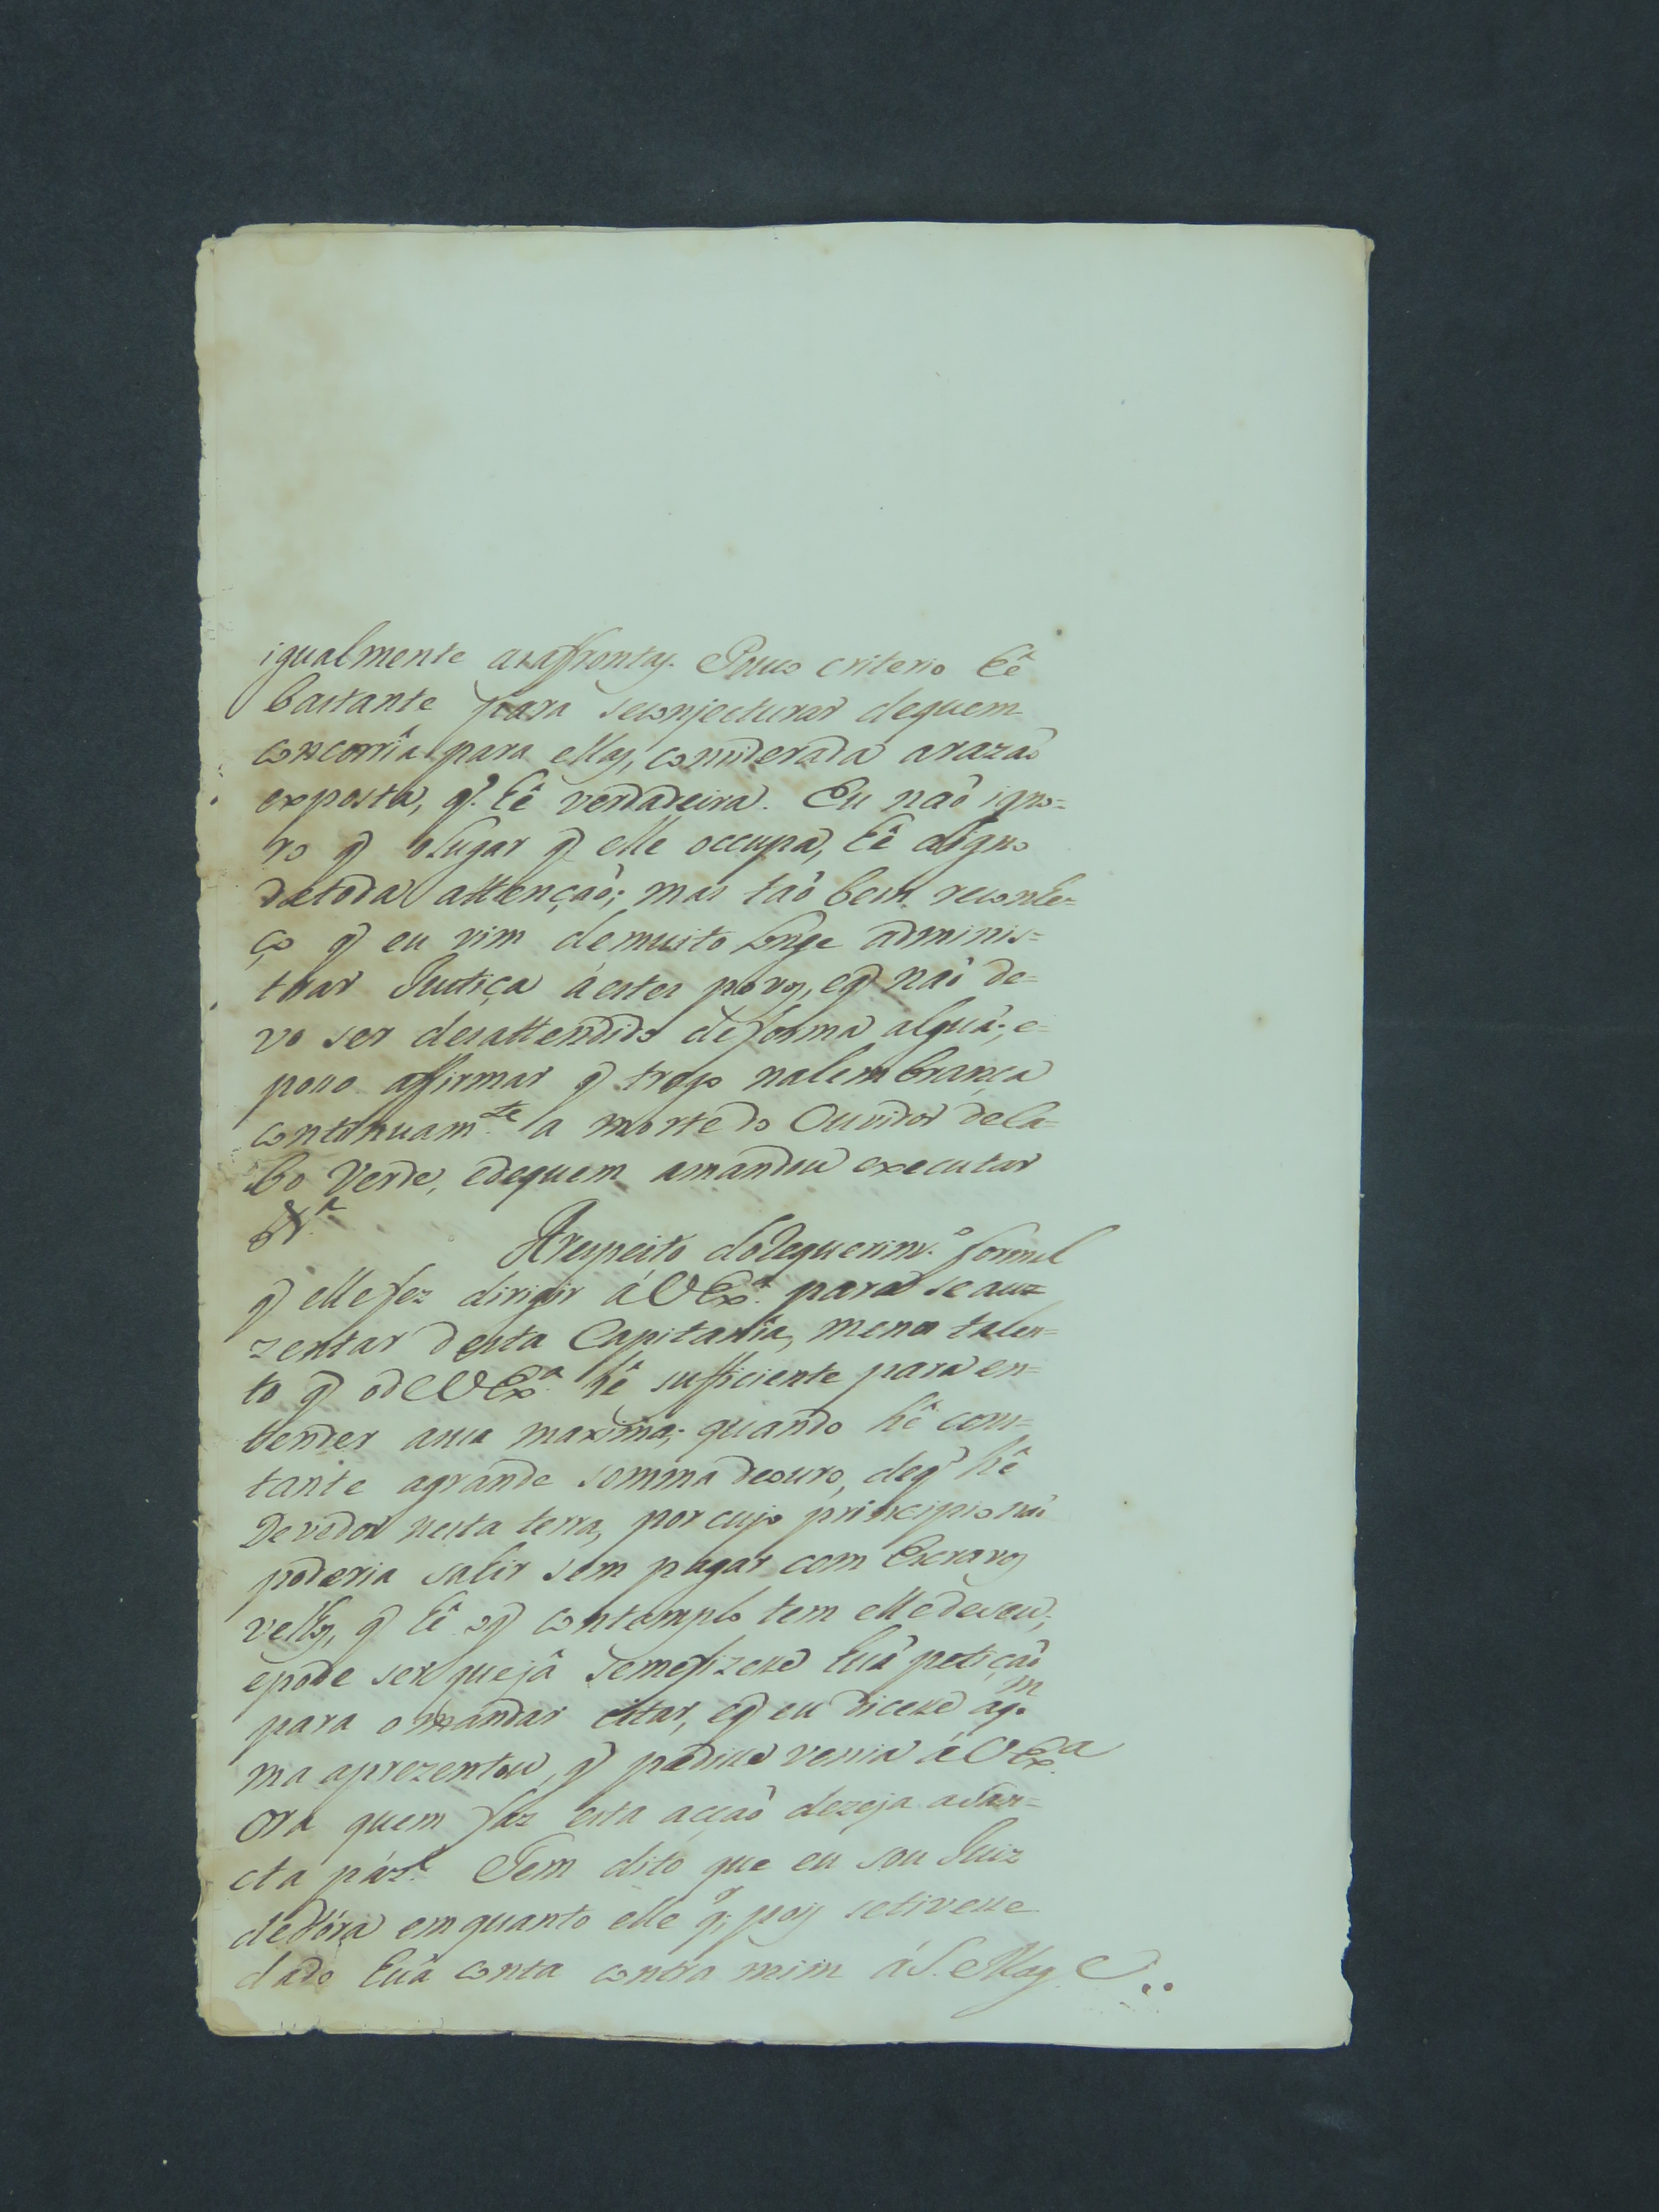 igualmente as affrontas. Pouco criterio hê
bastante para seconjecturar dequem
concorria para ellas, considerada arazaõ
exposta, q̃. hê verdadeira. Eu naõ igno=
ro q̃ olugar q̃ elle occupa, hê digno
detoda attençaõ; mas taõ bem reconhe=
ço q̃ eu vim demuito longe adminis=
trar Justiça á estes povos, eq̃ naõ de=
vo ser desattendido deforma alguã; e
posso affirmar q̃ trago nalembrança
continuam.te a morte do Ouvidor deCa=
bo Verde, edequem amandou executar
Arespeito doRequerim.o formal
q̃ elle fez dirigir á VExa. para se auz
zentar desta Capitania, menor talen=
to q̃ odeVExa. hê sufficiente para en=
tender asua maxima; quando hê cons=
tante agrande somma deouro, deq̃ hê
Devedor nesta terra, por cujo principio naõ
poderia sahir sem pagar com Escravos
velhos, q̃ hê oq̃ contemplo tem elle deseu;
epode ser que jâ semefizesse huã petiçaõ
para omandar citar, eq̃ eu dicesse áq.m
ma aprezentou, q̃ pedisse venia á VExa
Ora quem faz esta acçaõ dezeja
Tem dito que eu sou Juiz
defóra emquanto elle q̃; pois setivesse
dado huã conta contra mim áS. Mage..